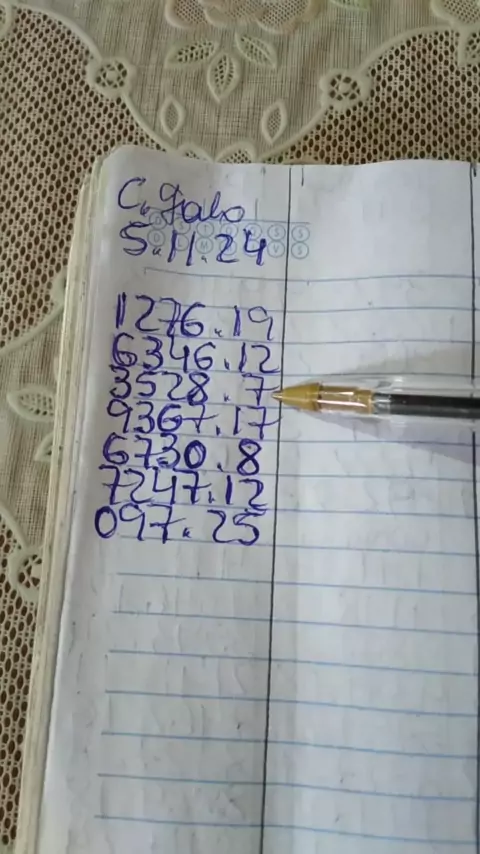 C. Galo
5.11.24
1276.19
6346.12
3528.7
9367.17
6730.8
7247.12
097.25